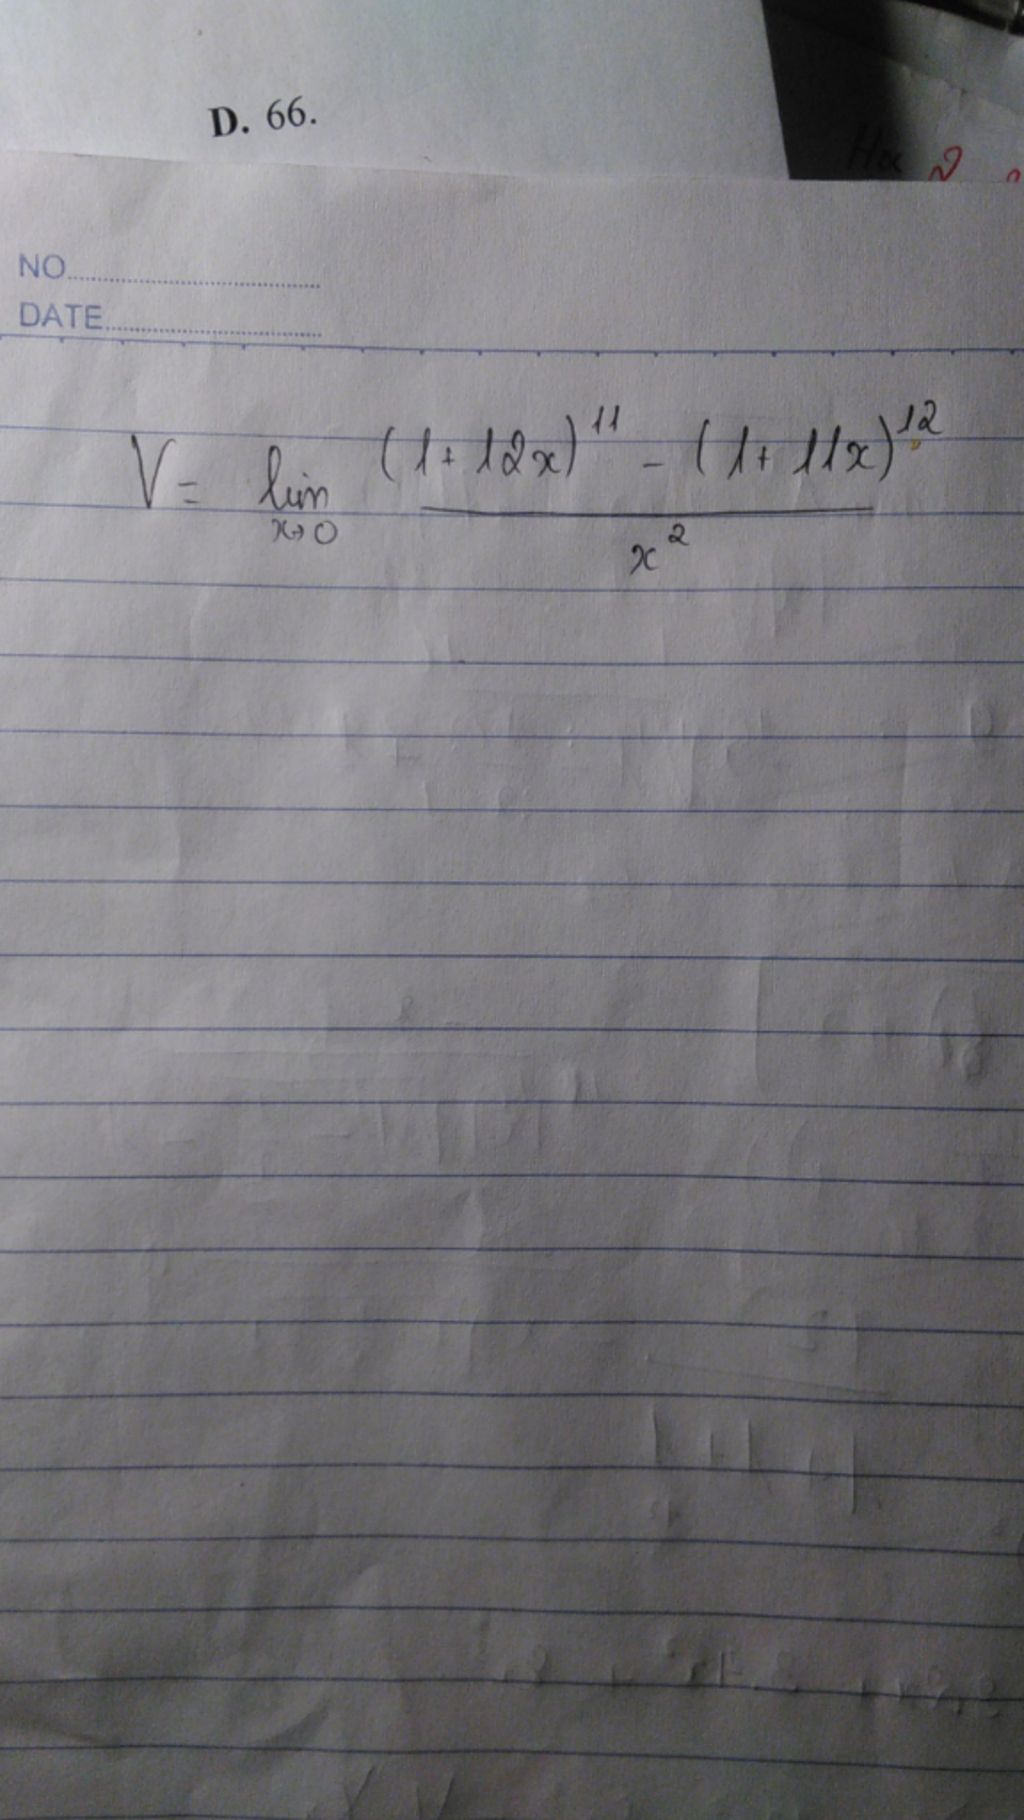 D. 66.
NO
DATE
V = lim x→0 ((1 + 12x)^11 - (1 + 11x)^12) / x^2